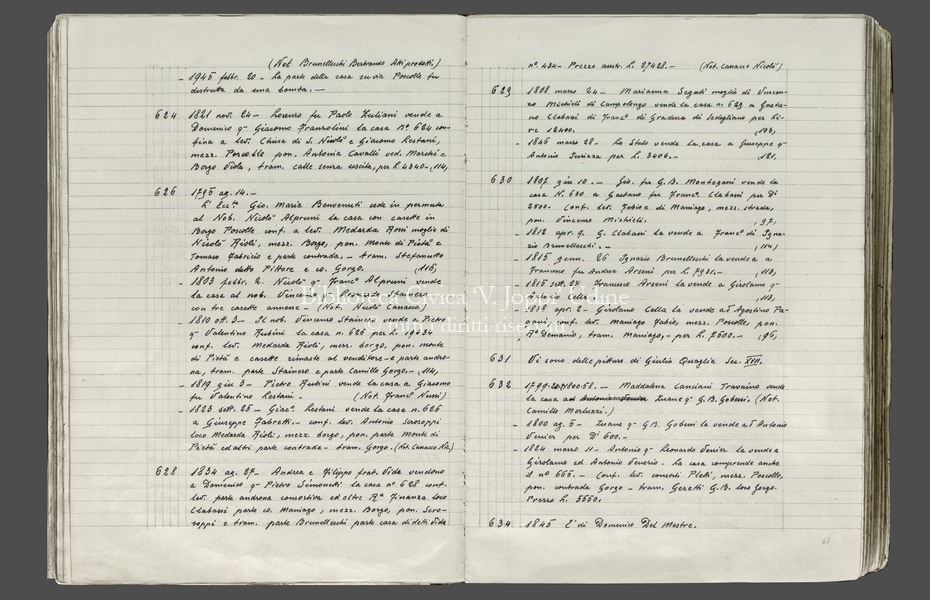 (Not. Brunelleschi Bertrando Atti prodetti.)
- 1945 febbr. 20 - La parte della casa su via Poscolle fu
distrutta da una bomba. -
624 1821 nov. 24 - Lorenzo fu Paolo Zuliani vende a
Domenico q. Giacomo Franzolini la casa N° 624 con-
fina a lev. Chiesa di S. Nicolò e Giacomo Lestani,
mezz. Poscolle pon. Antonia Cavalli ved. Marchi e
Borgo Viola, tram. calle senza uscita, per L. 4340 - (114)
626 1795 ag. 14. -
L' Ecc. Gio. Maria Benvenuti cede in permuta
al Nob. Nicolò Alpruni la casa con casette in
Borgo Poscolle conf. a lev. Medarda Rossi moglie di
Nicolò Rioli, mezz. Borgo, pon. Monte di Pietà e
Tomaso Fabrizio e parte contrada, - tram. Stefanutto
Antonio detto Pittore e co. Gorgo. (116)
- 1803 febbr. 2. Nicolò q. Franc° Alpruni vende
la casa al nob. Vincenzo Stainero
con tre casette annesse - (Not. Nicolò Canacco)
- 1810 ott. 3 - Il nob. Vincenzo Stainero vende a Pietro
q. Valentino Rubini la casa n. 626 per L. 19634
conf. lev. Medarda Rioli, mezz. borgo, pon. monte
di Pietà e casette rimaste al venditore e parte andro-
na, tram. parte Stainero e parte Camillo Gorgo. - (114)
- 1819 giu 3 - Pietro Rubini vende la casa a Giacomo
fu Valentino Lestani - (Not. Franc° Nussi)
- 1823 sett. 25 - Giac° Lestani vende la casa n. 626
a Giuseppe Fabretti. - conf. lev. Antonio Scrosoppi
loco Medarda Rioli, mezz. borgo, pon. parte Monte di
Pietà ed altri parte contrada - tram. Gorgo. (Not. Canacco Nic.)
628 1834 ag. 27 - Andrea e Filippo frat. Vida vendono
a Domenico q. Pietro Simonetti la casa n° 628 conf.
lev. parte androna consortiva ed oltre Rª Finanza loco
Clabassi parte co. Maniago, mezz. Borgo, pon. Scro-
soppi e tram. parte Brunelleschi parte casa di detti Vida
n° 434 - Prezzo austr. L. 29428. - (Not. Canacco Nicolò)
629 1808 marz 24 - Marianna Segati moglie di Vincen-
zo Michieli di Campolongo vende la casa n. 629 a Gaeta-
no Clabassi di Franc° di Gradisca di Sedegliano per Li-
re 12400. (103)
- 1846 marz 28 - Lo Stato vende la casa a Giuseppe q.
Antonio Jurizza per L. 3406. - 121,
630 1807 giu 10. - Gio. fu G.B. Montegani vende la
casa N. 630 a Gaetano fu Franc° Clabassi per D.
2500 - Conf. lev. Fabio di Maniago, mezz. strada,
pon. Vincenzo Michieli. (97)
- 1812 apr. 9. G. Clabassi la vende a Franc° di Igna-
zio Brunelleschi. - (114)
- 1815 genn. 26 Ignazio Brunelleschi la vende a
Francesco fu Andrea Arseni per L. 7931. - (113)
- 1815 sett. 24 Francesco Arseni la vende a Girolamo q.
Cella 113)
- 1818 apr. 2 - Girolamo Cella la vende ad Agostino Pa-
conf. lev. Maniago Fabio, mezz. Poscolle, pon.
Rº Demanio, tram. Maniago, - per L. 7500. - (96)
631 Vi sono delle pitture di Giulio Quaglia Sec. XVII.
632 1799 1800:58. - Maddalena Canciani Travaino vende
la casa ad Antonio Venier Zuane q. G.B. Gobessi. (Not.
Camillo Merluzzi.)
- 1800 ag. 5 - Zuane q. G.B. Gobessi la vende ad Antonio
Venier per D. 600. -
- 1824 marzo 11 - Antonio q. Leonardo Venier la vende a
Girolamo ed Antonio Venerio. La casa comprende anche
il n° 665. - Conf. lev. consorti Pletti, mezz. Poscolle,
pon. contrada Gorgo - tram. Geretti G.B. loco Gorgo.
Prezzo L. 5550.
634 1845 È di Domenico Del Mestre.
68
Biblioteca Civica V. Joppi Udine
© tutti i diritti riservati